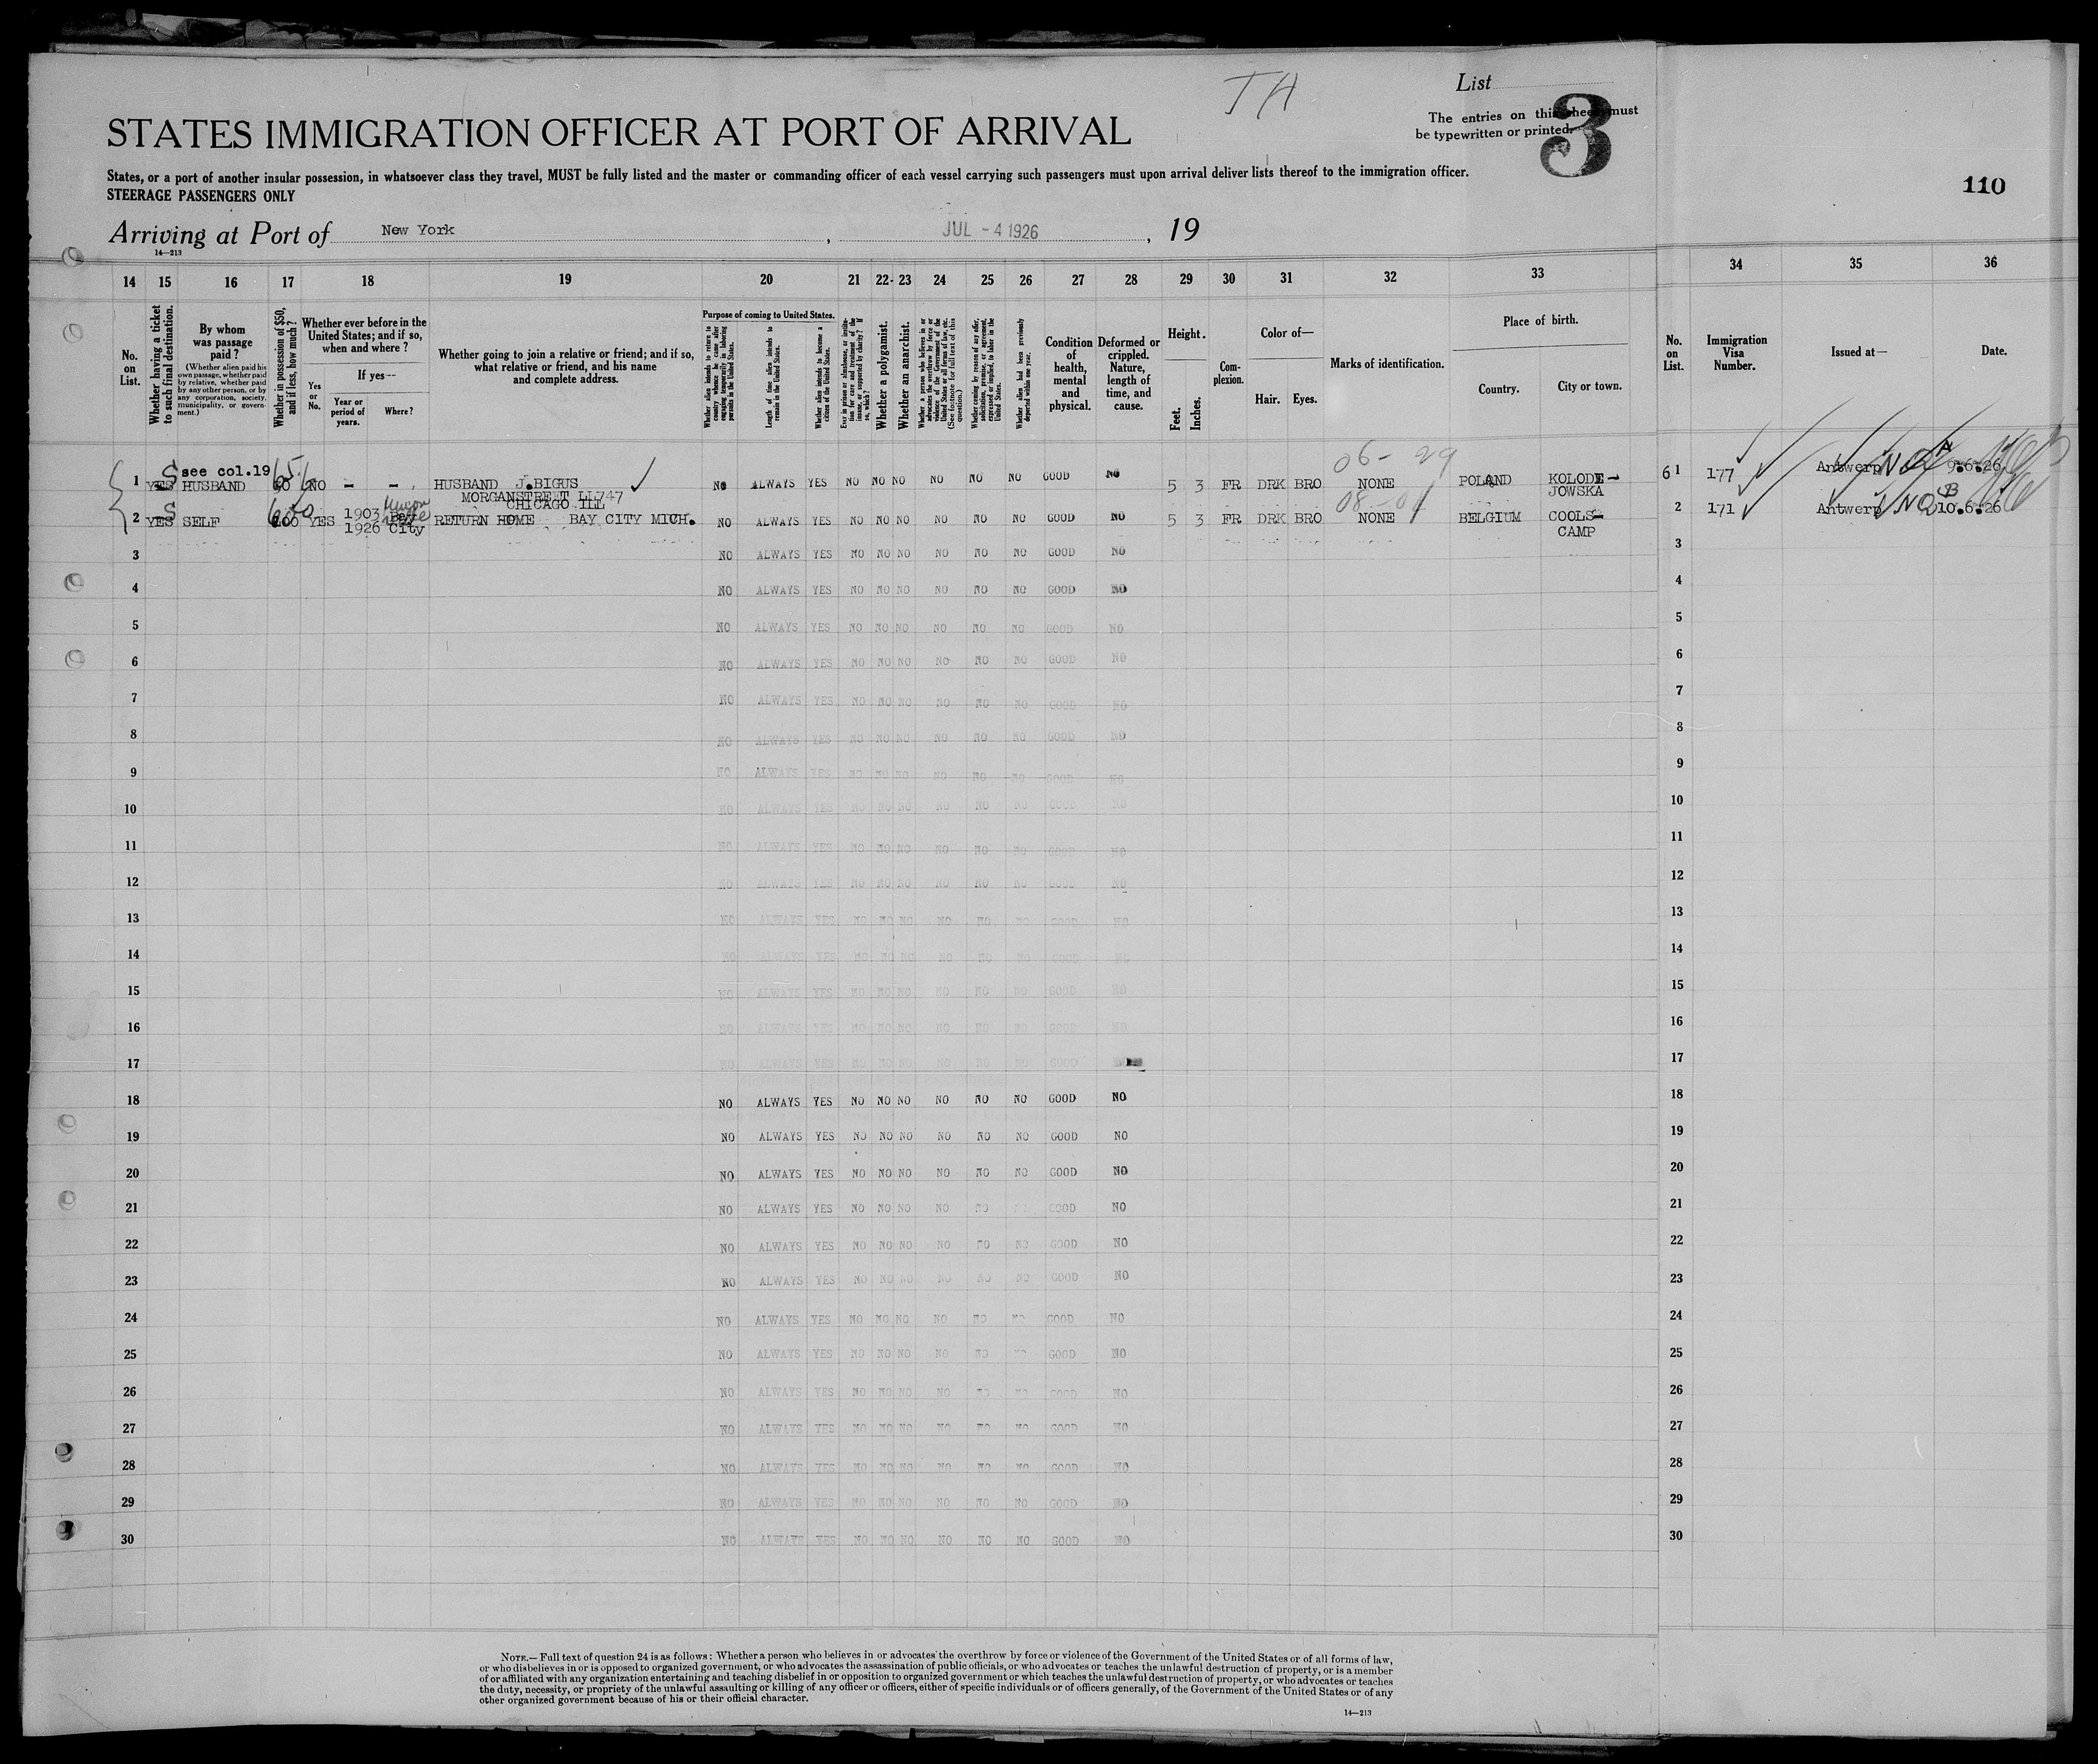 TH
List
The entries on this sheet must
be typewritten or printed.
3
STATES IMMIGRATION OFFICER AT PORT OF ARRIVAL
States, or a port of another insular possession, in whatsoever class they travel, MUST be fully listed and the master or commanding officer of each vessel carrying such passengers must upon arrival deliver lists thereof to the immigration officer.
STEERAGE PASSENGERS ONLY
110
Arriving at Port of New York, JUL - 4 1926, 19
14—213
14 15 16 17 18 19 20 21 22 23 24 25 26 27 28 29 30 31 32 33 34 35 36
No. on List.
Whether having a ticket to such final destination.
By whom was passage paid?
(Whether alien paid his own passage, whether paid by relative, whether paid by any other person, or by any corporation, society, municipality, or government.)
Whether in possession of $50, and if less, how much?
Whether ever before in the United States; and if so, when and where?
Yes or No.
If yes—
Year or period of years.
Where?
Whether going to join a relative or friend; and if so, what relative or friend, and his name and complete address.
Purpose of coming to United States.
Whether alien intends to return to country whence he came after engaging temporarily in laboring pursuits in the United States.
Length of time alien intends to remain in the United States.
Whether alien intends to become a citizen of the United States.
Ever in prison or almshouse, or institution for care and treatment of the insane, or supported by charity? If so, which?
Whether a polygamist.
Whether an anarchist.
Whether a person who believes in or advocates the overthrow by force or violence of the Government of the United States or all forms of law, etc. (See footnote for full text of this question.)
Whether coming by reason of any offer, solicitation, promise, or agreement, expressed or implied, to labor in the United States.
Whether alien had been previously deported within one year.
Condition of health, mental and physical.
Deformed or crippled. Nature, length of time, and cause.
Height.
Feet.
Inches.
Complexion.
Color of—
Hair.
Eyes.
Marks of identification.
Place of birth.
Country.
City or town.
No. on List.
Immigration Visa Number.
Issued at—
Date.
06- 29
see col.19
1 YES S HUSBAND NO - - HUSBAND J.BIGUS NO ALWAYS YES NO NO NO NO NO NO GOOD NO 5 3 FR DRK BRO NONE POLAND KOLODE-
MORGANSTREET LL747 JOWSKA
CHICAGO ILL
6 1 177 Antwerp 9.6.26
2 YES S SELF YES 1903 Bay RETURN HOME BAY CITY MICH. NO ALWAYS YES NO NO NO NO NO NO GOOD NO 5 3 FR DRK BRO NONE BELGIUM COOLS-
1926 City CAMP
2 171 Antwerp 10.6.26
3 NO ALWAYS YES NO NO NO NO NO NO GOOD NO 3
4 NO ALWAYS YES NO NO NO NO NO NO GOOD NO 4
5 NO ALWAYS YES NO NO NO NO NO NO GOOD NO 5
6 NO ALWAYS YES NO NO NO NO NO NO GOOD NO 6
7 NO ALWAYS YES NO NO NO NO NO NO GOOD NO 7
8 NO ALWAYS YES NO NO NO NO NO NO GOOD NO 8
9 NO ALWAYS YES NO NO NO NO NO NO GOOD NO 9
10 NO ALWAYS YES NO NO NO NO NO NO GOOD NO 10
11 NO ALWAYS YES NO NO NO NO NO NO GOOD NO 11
12 NO ALWAYS YES NO NO NO NO NO NO GOOD NO 12
13 NO ALWAYS YES NO NO NO NO NO NO GOOD NO 13
14 NO ALWAYS YES NO NO NO NO NO NO GOOD NO 14
15 NO ALWAYS YES NO NO NO NO NO NO GOOD NO 15
16 NO ALWAYS YES NO NO NO NO NO NO GOOD NO 16
17 NO ALWAYS YES NO NO NO NO NO NO GOOD 17
18 NO ALWAYS YES NO NO NO NO NO NO GOOD NO 18
19 NO ALWAYS YES NO NO NO NO NO NO GOOD NO 19
20 NO ALWAYS YES NO NO NO NO NO NO GOOD NO 20
21 NO ALWAYS YES NO NO NO NO NO GOOD NO 21
22 NO ALWAYS YES NO NO NO NO NO NO GOOD NO 22
23 NO ALWAYS YES NO NO NO NO NO NO GOOD NO 23
24 NO ALWAYS YES NO NO NO NO NO NO GOOD NO 24
25 NO ALWAYS YES NO NO NO NO NO GOOD NO 25
26 NO ALWAYS YES NO NO NO NO NO NO GOOD NO 26
27 NO ALWAYS YES NO NO NO NO NO NO GOOD NO 27
28 NO ALWAYS YES NO NO NO NO NO NO GOOD NO 28
29 NO ALWAYS YES NO NO NO NO NO NO GOOD NO 29
30 NO ALWAYS YES NO NO NO NO NO NO GOOD NO 30
NOTE.—Full text of question 24 is as follows: Whether a person who believes in or advocates the overthrow by force or violence of the Government of the United States or of all forms of law,
or who disbelieves in or is opposed to organized government, or who advocates the assassination of public officials, or who advocates or teaches the unlawful destruction of property, or is a member
of or affiliated with any organization entertaining and teaching disbelief in or opposition to organized government or which teaches the unlawful destruction of property, or who advocates or teaches
the duty, necessity, or propriety of the unlawful assaulting or killing of any officer or officers, either of specific individuals or of officers generally, of the Government of the United States or of any
other organized government because of his or their official character.
14—213